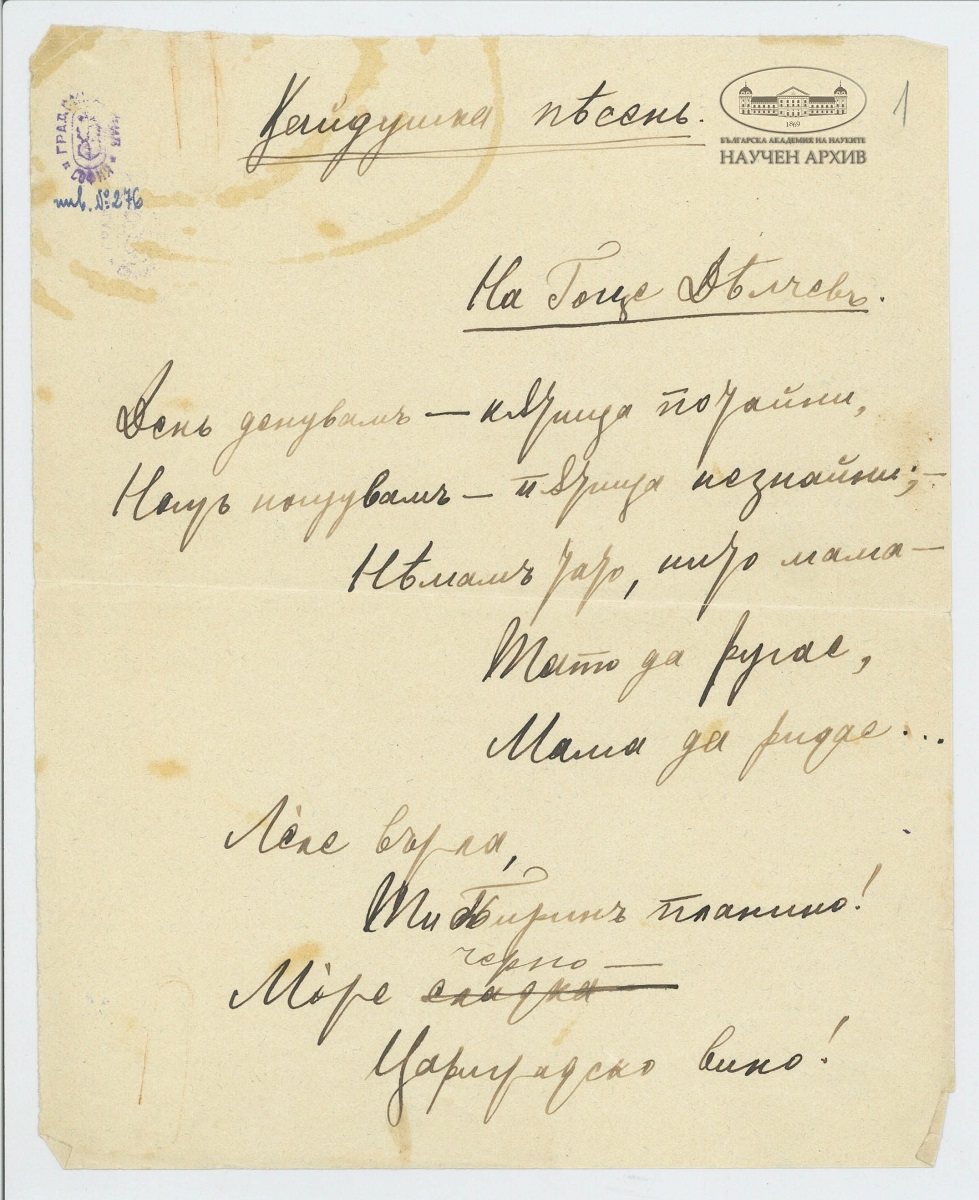 Хайдушка пѣсень.
1
БЪЛГАРСКА АКАДЕМИЯ НА НАУКИТЕ
НАУЧЕН АРХИВ
1869
инв. № 276
На Гоце Дѣлчевъ.
День денувамъ — кѫтища потайни,
Нощъ нощувамъ — пѫтища незнайни; —
Нѣмамъ тато, нито мама —
Тато да ругае,
Мама да ридае...
Лѐле върла,
Ти Пиринъ планино!
черно —
Мòре сладка
Цариградско вино!